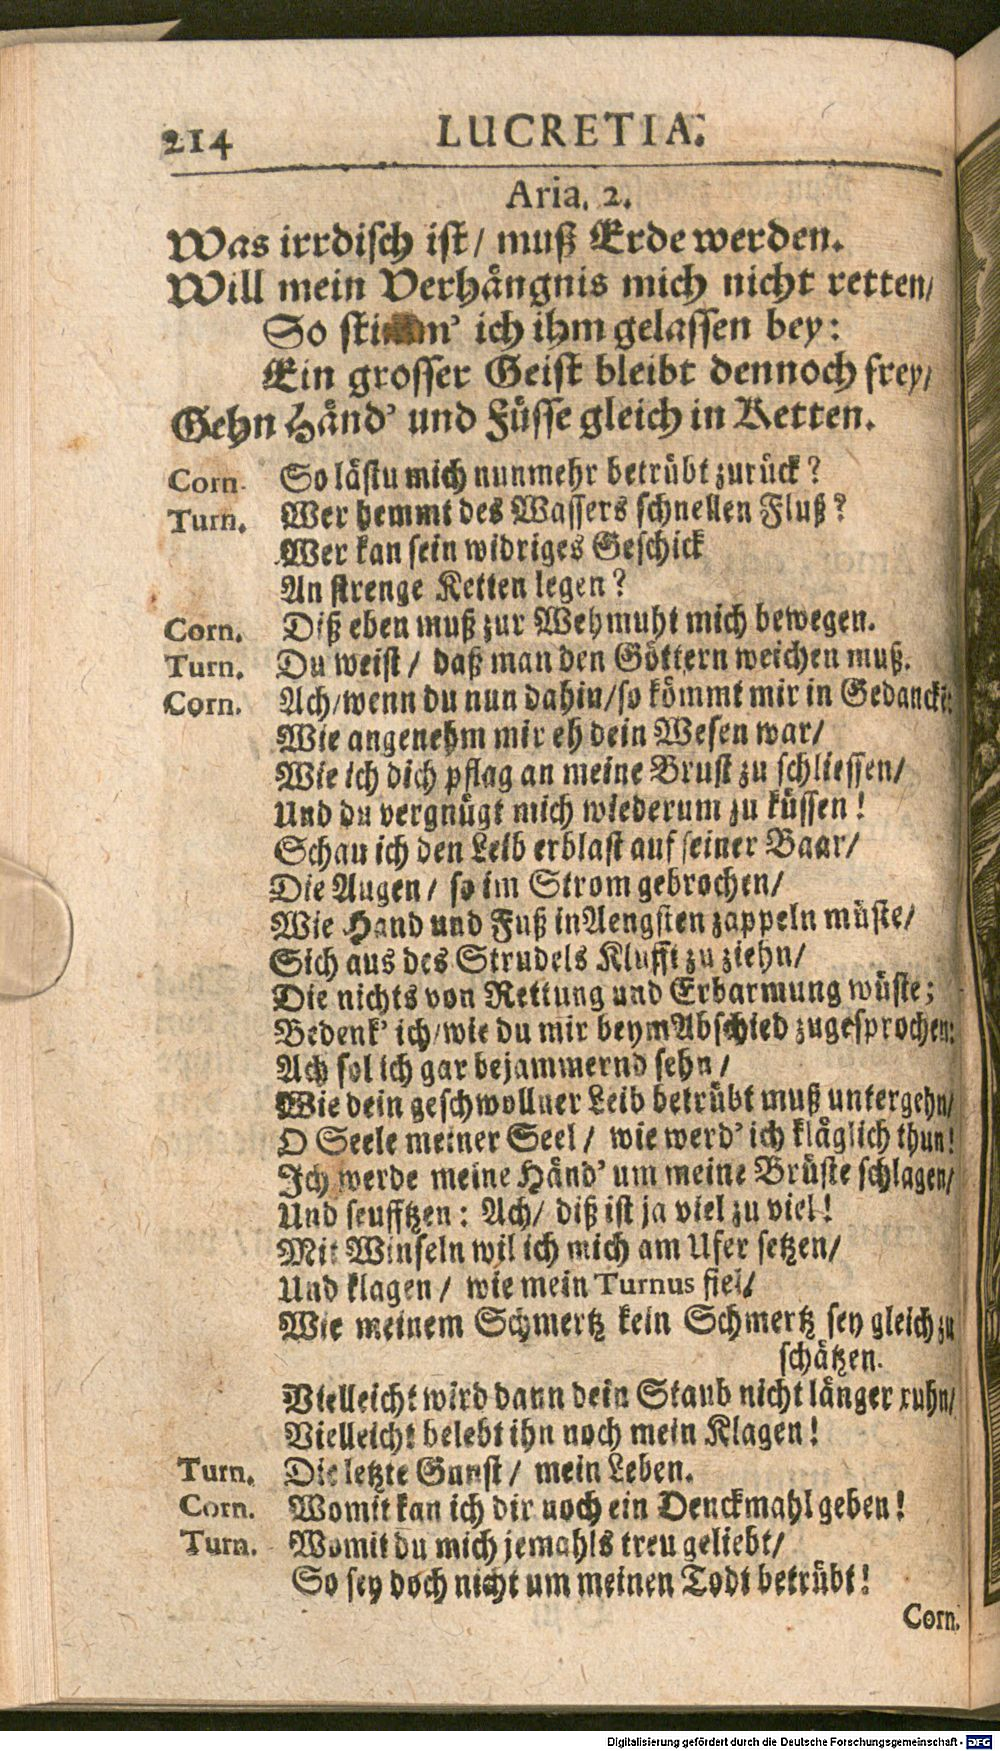 214 LUCRETIA.
Aria. 2.
Was irrdisch ist/ muß Erde werden.
Will mein Verhångnis mich nicht retten/
So stimm' ich ihm gelassen bey:
Ein grosser Geist bleibt dennoch frey/
Gehn Hånd' und Füsse gleich in Ketten.
Corn. So låstu mich nunmehr betrübt zurück?
Turn. Wer hemmt des Wassers schnellen Fluß?
Wer kan sein widriges Geschick
An strenge Ketten legen?
Corn. Diß eben muß zur Wehmuht mich bewegen.
Turn. Du weist/ daß man den Göttern weichen muß.
Corn. Ach/wenn du nun dahin/so kömmt mir in Gedancken:
Wie angenehm mir eh dein Wesen war/
Wie ich dich pflag an meine Brust zu schliessen/
Und du vergnügt mich wiederum zu küssen!
Schau ich den Leib erblast auf seiner Baar/
Die Augen/ so im Strom gebrochen/
Wie Hand und Fuß in Aengsten zappeln müste/
Sich aus des Strudels Klufft zu ziehn/
Die nichts von Rettung und Erbarmung wüste;
Bedenk' ich/wie du mir beym Abschied zugesprochen:
Ach sol ich gar bejammernd sehn/
Wie dein geschwollner Leib betrübt muß untergehn/
O Seele meiner Seel/ wie werd' ich klåglich thun!
Ich werde meine Hånd' um meine Brüste schlagen/
Und seufftzen: Ach/ diß ist ja viel zu viel!
Mit Winseln wil ich mich am Ufer setzen/
Und klagen/ wie mein Turnus fiel/
Wie meinem Schmertz kein Schmertz sey gleich zu
schåtzen.
Vielleicht wird dann dein Staub nicht långer ruhn/
Vielleicht belebt ihn noch mein Klagen!
Turn. Die letzte Gunst/ mein Leben.
Corn. Womit kan ich dir noch ein Denckmahl geben!
Turn. Womit du mich jemahls treu geliebt/
So sey doch nicht um meinen Todt betrübt!
Corn.
Digitalisierung gefördert durch die Deutsche Forschungsgemeinschaft - DFG